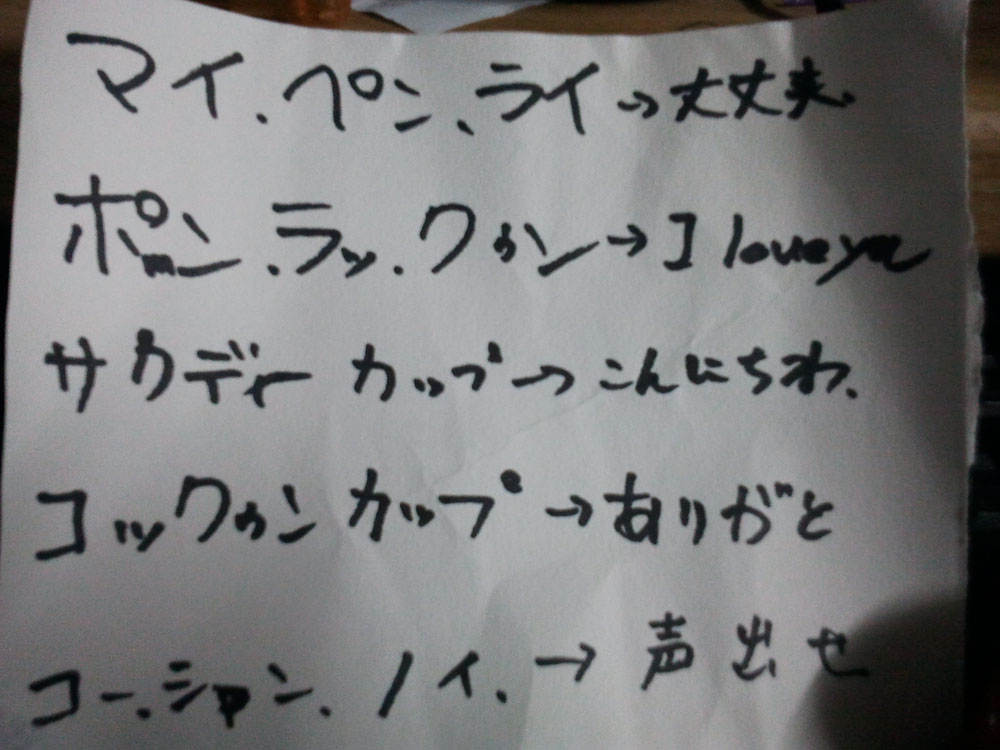 マイ、ペン、ライ→大丈夫、
ポン、ラッ、クゥン→I love you
サウディー カップ→こんにちわ、
コックゥン カップ→ありがと
コー、シャン、ノイ、→声出せ